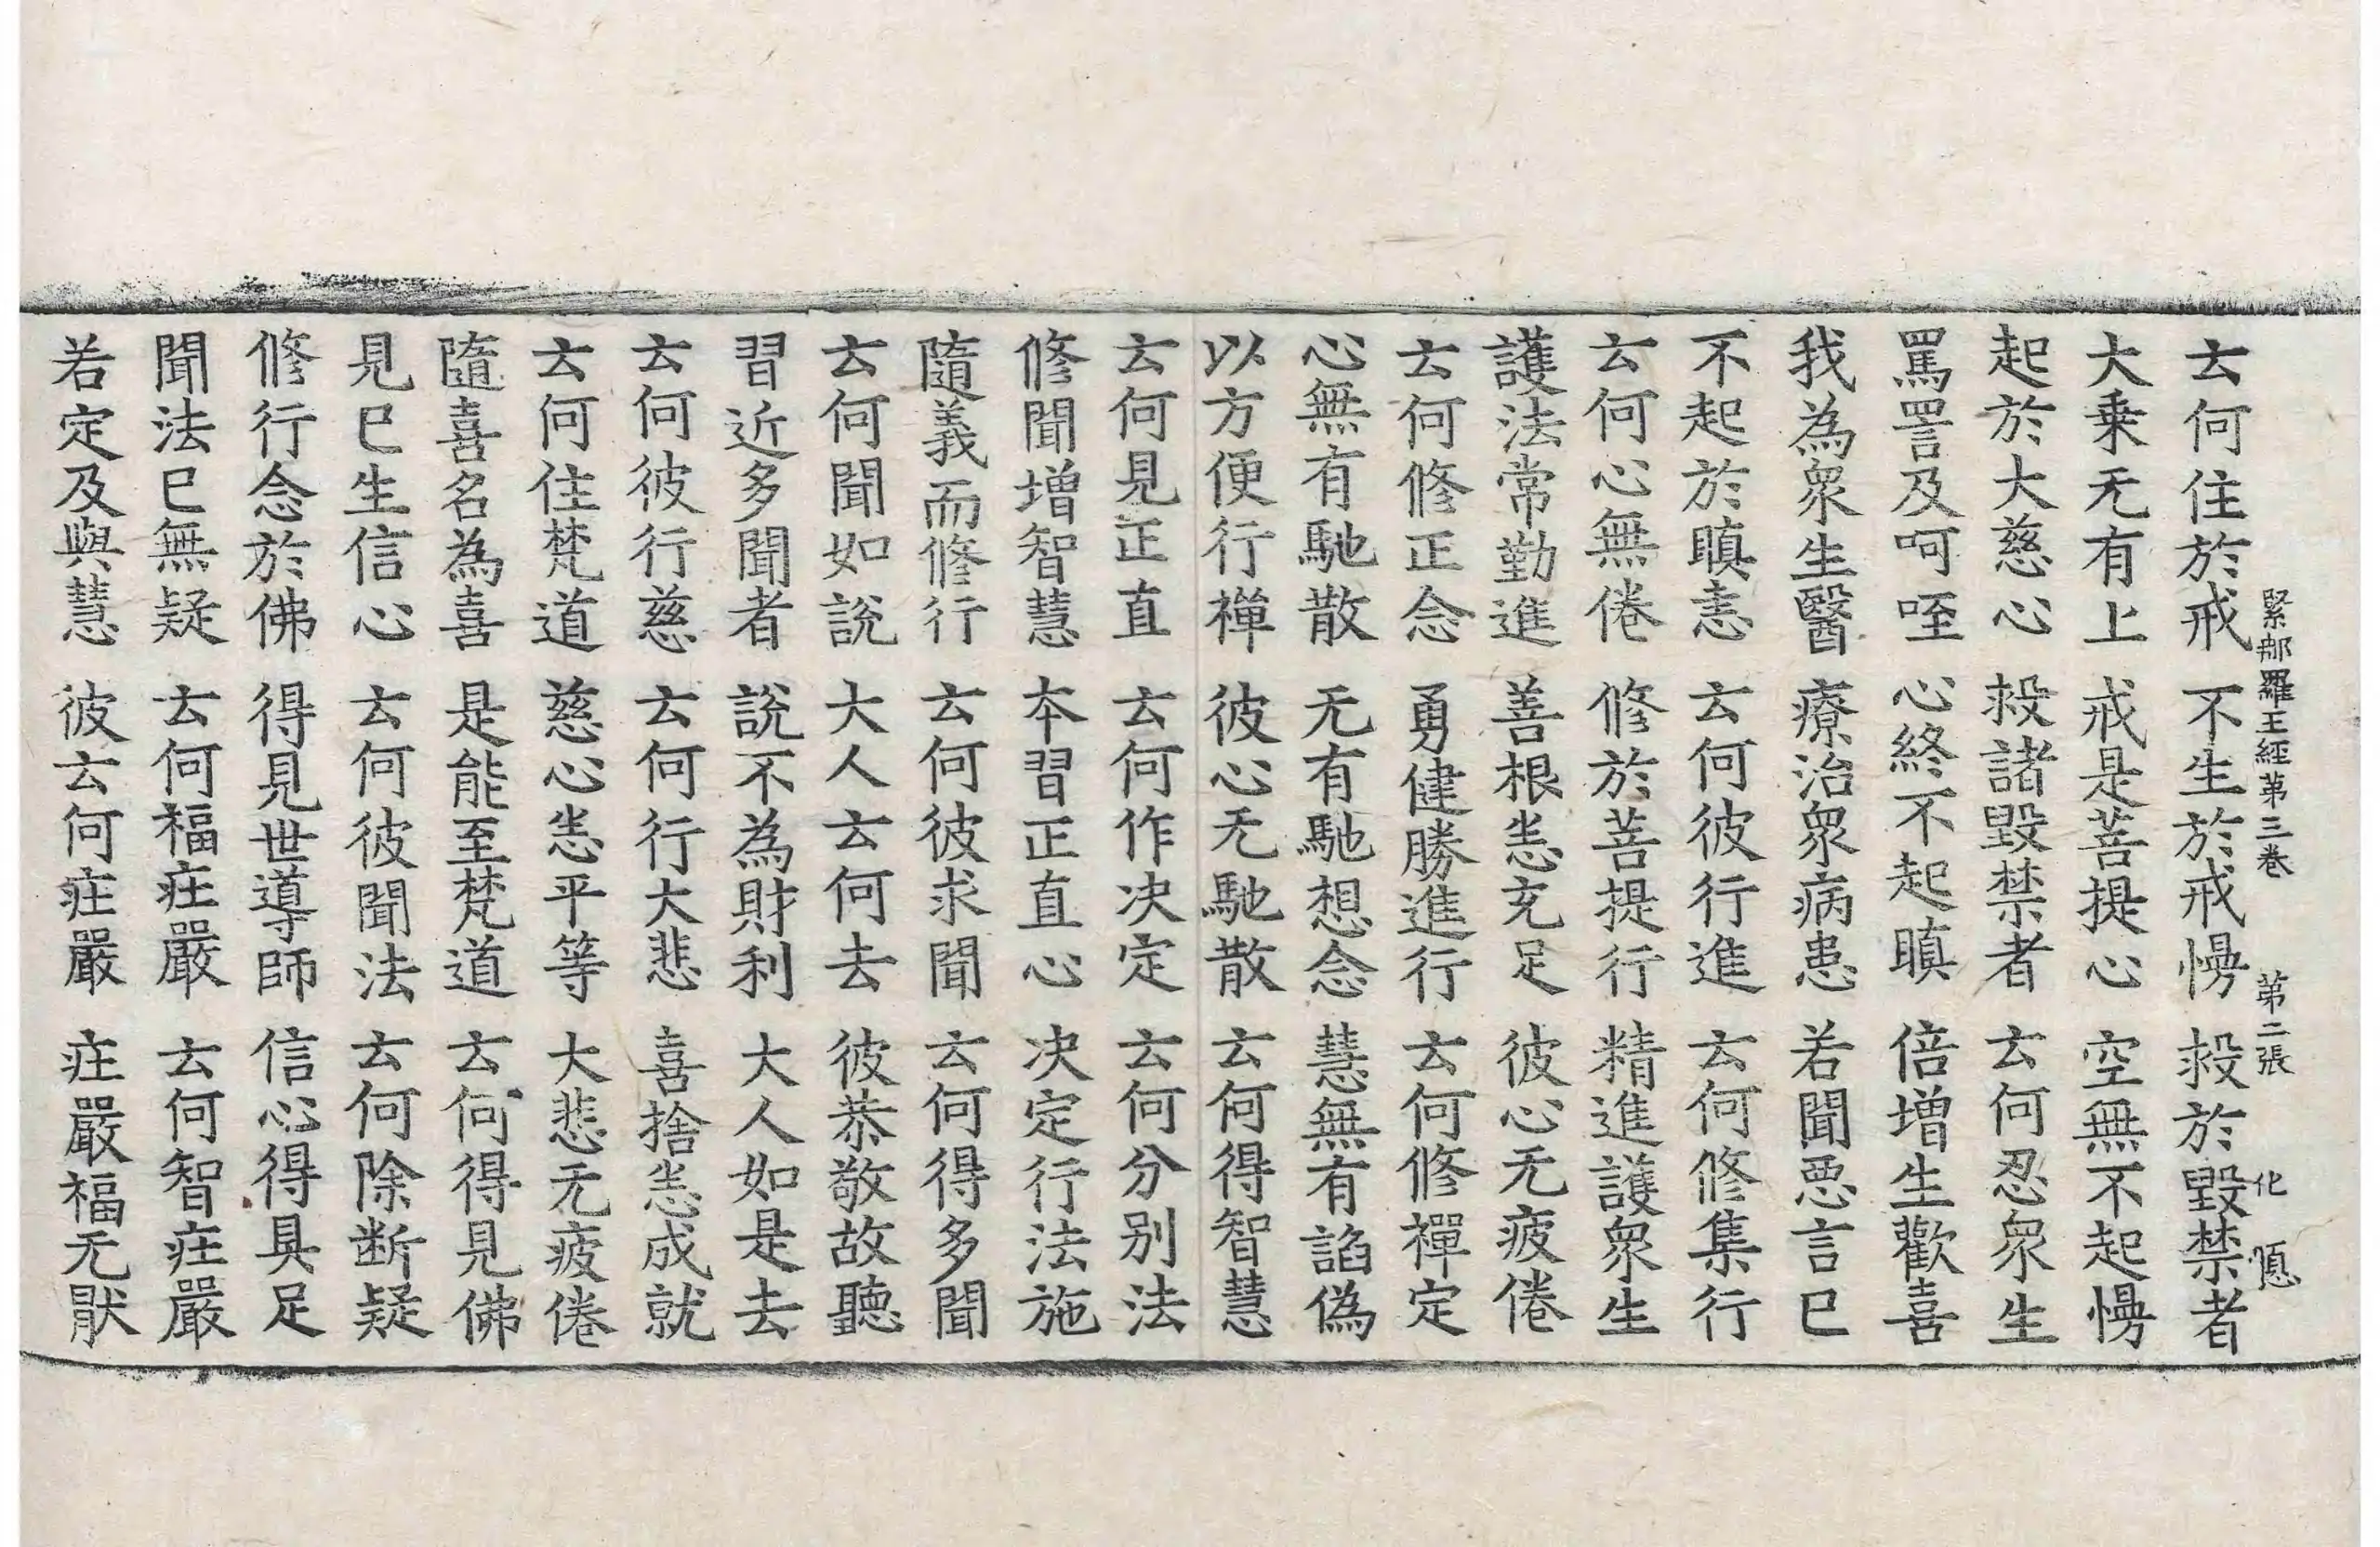 緊那羅王經第三卷 第二張 化
云何住於戒 不生於戒慢 救於毀禁者
大乗无有上 戒是菩提心 空無不起慢
起於大慈心 救諸毀禁者 云何忍衆生
罵詈及呵咥 心終不起瞋 倍增生歡喜
我為衆生醫 療治衆病患 若聞惡言已
不起於瞋恚 云何彼行進 云何修集行
云何心無倦 修於菩提行 精進護衆生
護法常勤進 善根悉充足 彼心无疲倦
云何修正念 勇健勝進行 云何修禪定
心無有馳散 无有馳想念 慧無有諂偽
以方便行禪 彼心无馳散 云何得智慧
云何見正直 云何作决定 云何分别法
修聞增智慧 本習正直心 决定行法施
隨義而修行 云何彼求聞 云何得多聞
云何聞如說 大人云何去 彼恭敬故聽
習近多聞者 說不為財利 大人如是去
云何彼行慈 云何行大悲 喜捨悉成就
云何住梵道 慈心悉平等 大悲无疲倦
隨喜名為喜 是能至梵道 云何得見佛
見已生信心 云何彼聞法 云何除断疑
修行念於佛 得見世導師 信心得具足
聞法已無疑 云何福庄嚴 云何智庄嚴
若定及與慧 彼云何庄嚴 庄嚴福无猒